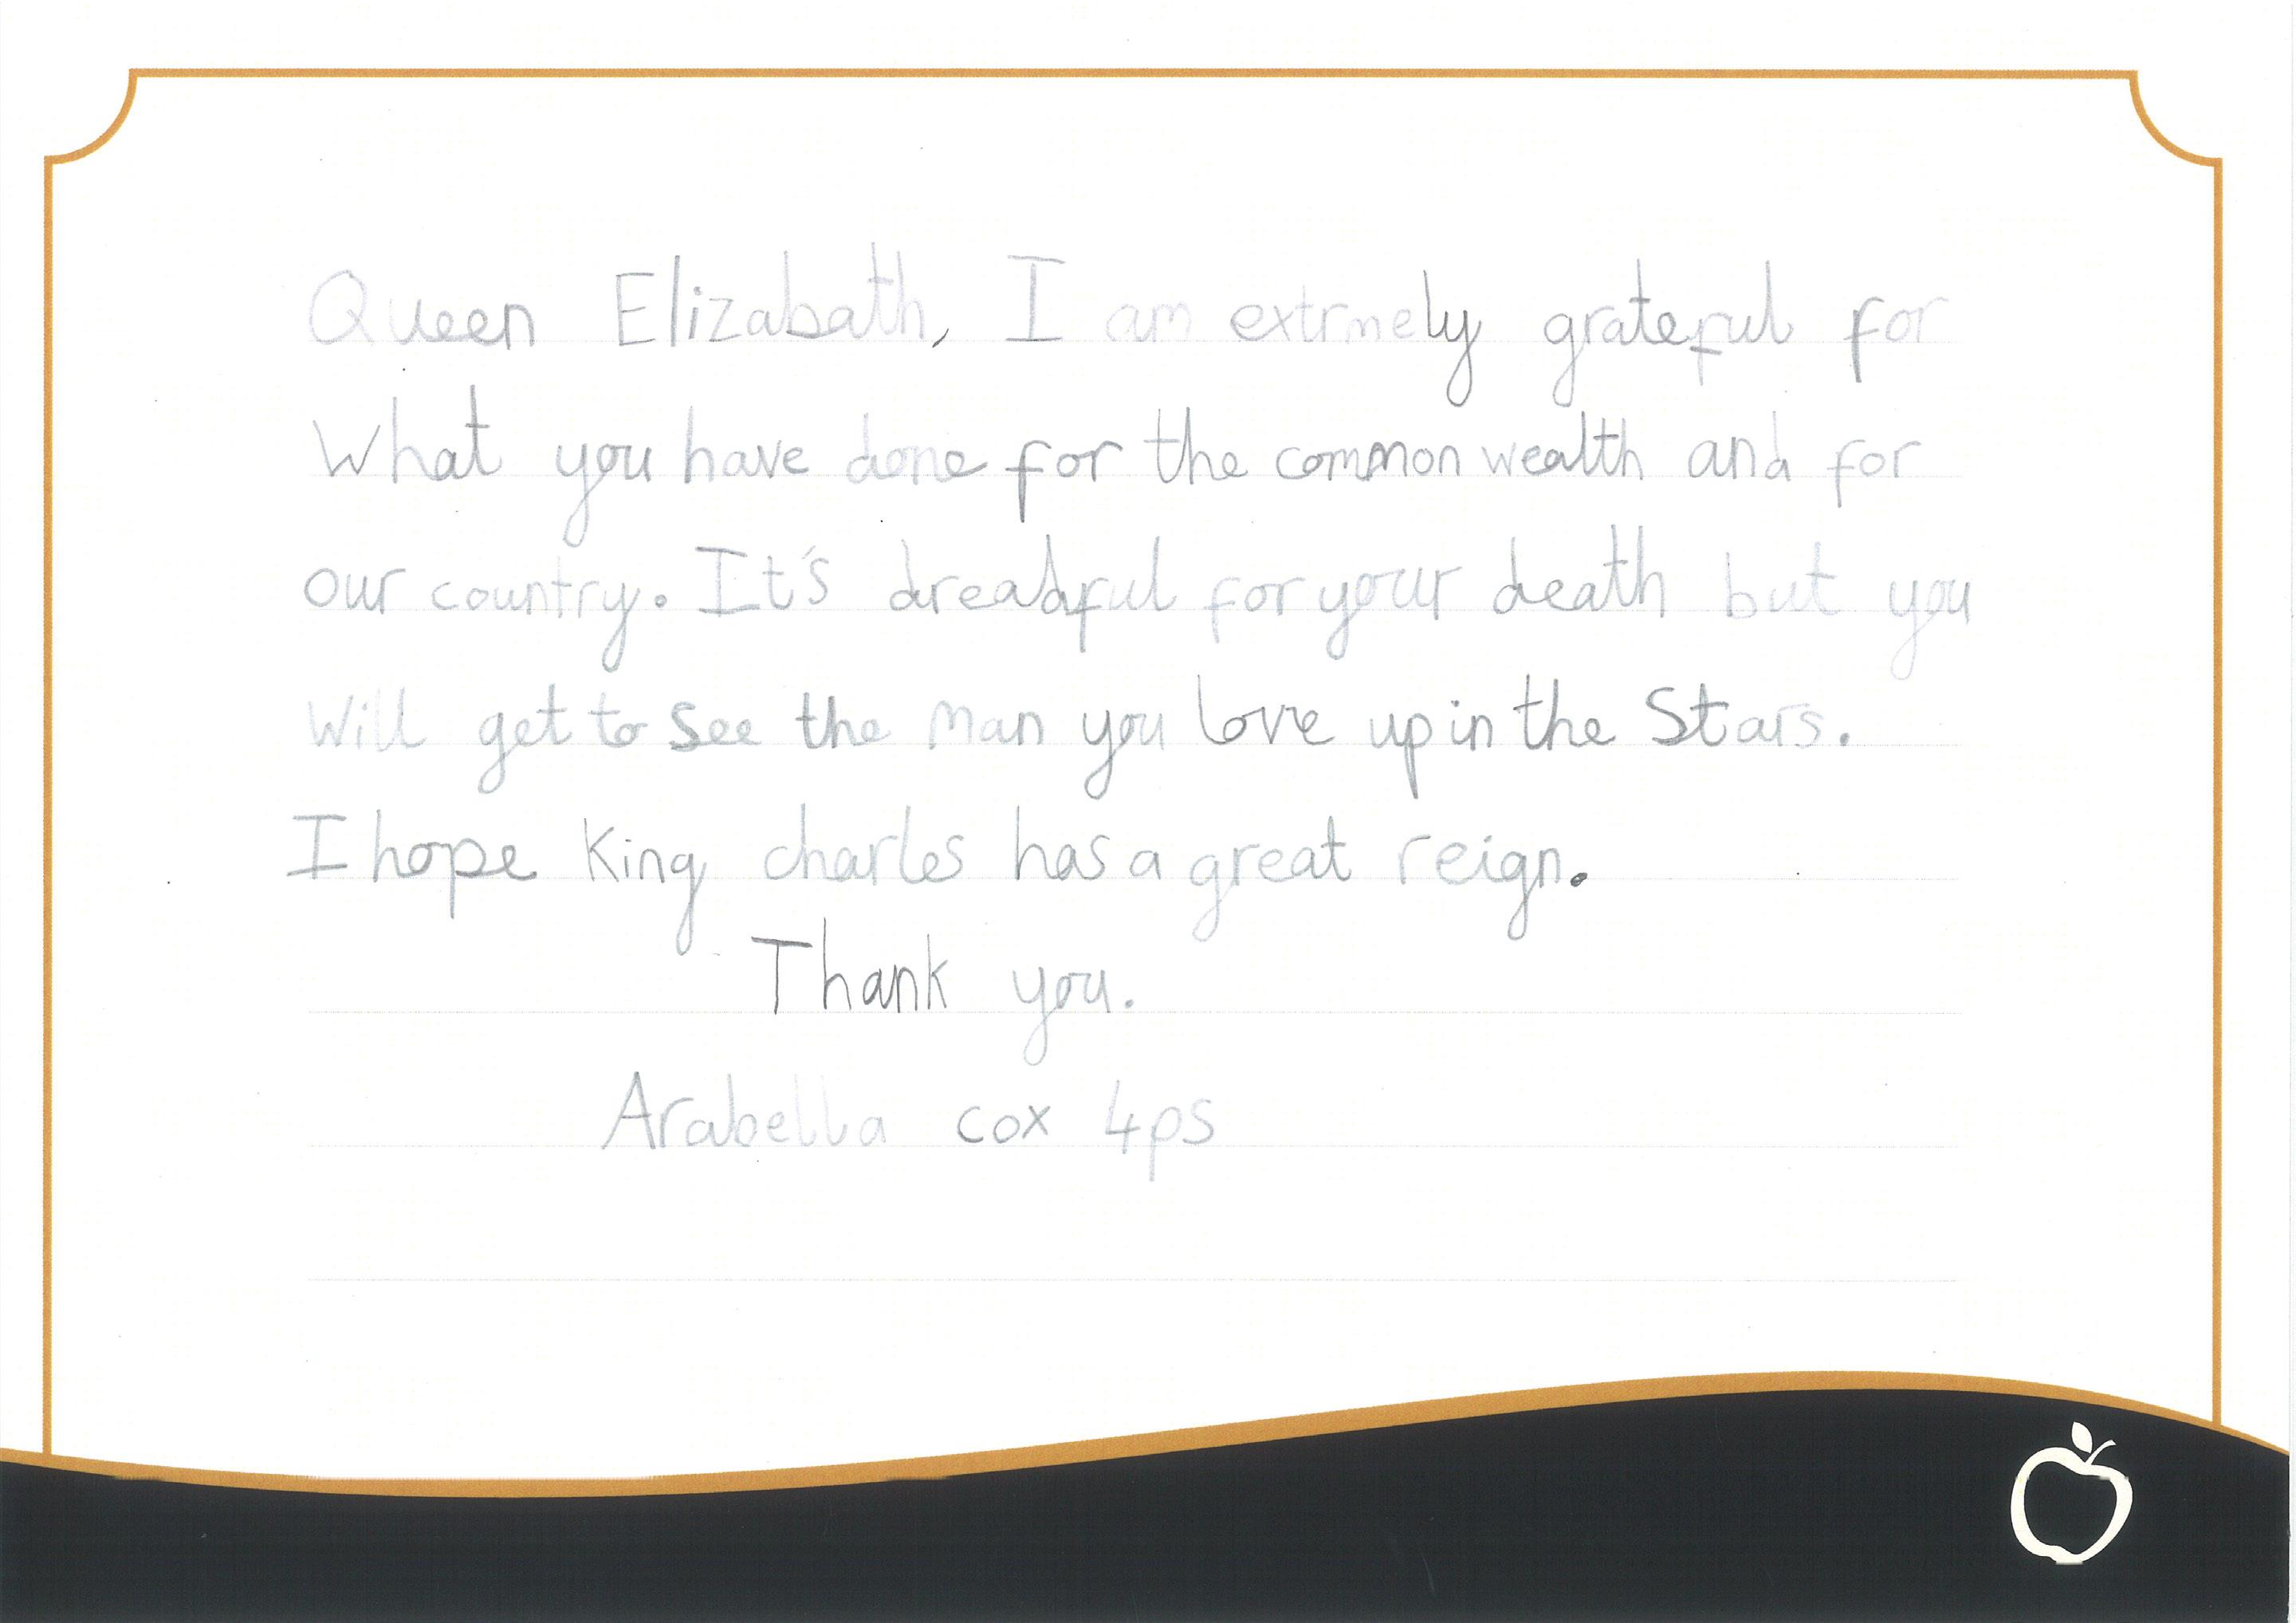 Queen Elizabath, I am extrmely grateful for
What you have done for the common wealth and for
our country. It's dreadful for your death but you
will get to see the man you love up in the Stars.
I hope King charles has a great reign.
Thank you.
Arabella cox 4ps